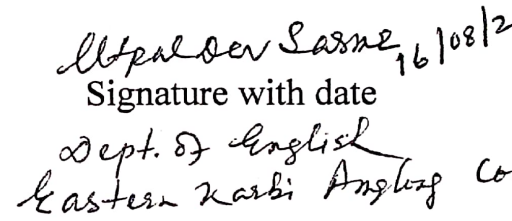 Utpal Dev Sarma, 16/08/2
Signature with date
Dept. of English
Eastern Karbi Anglong Co